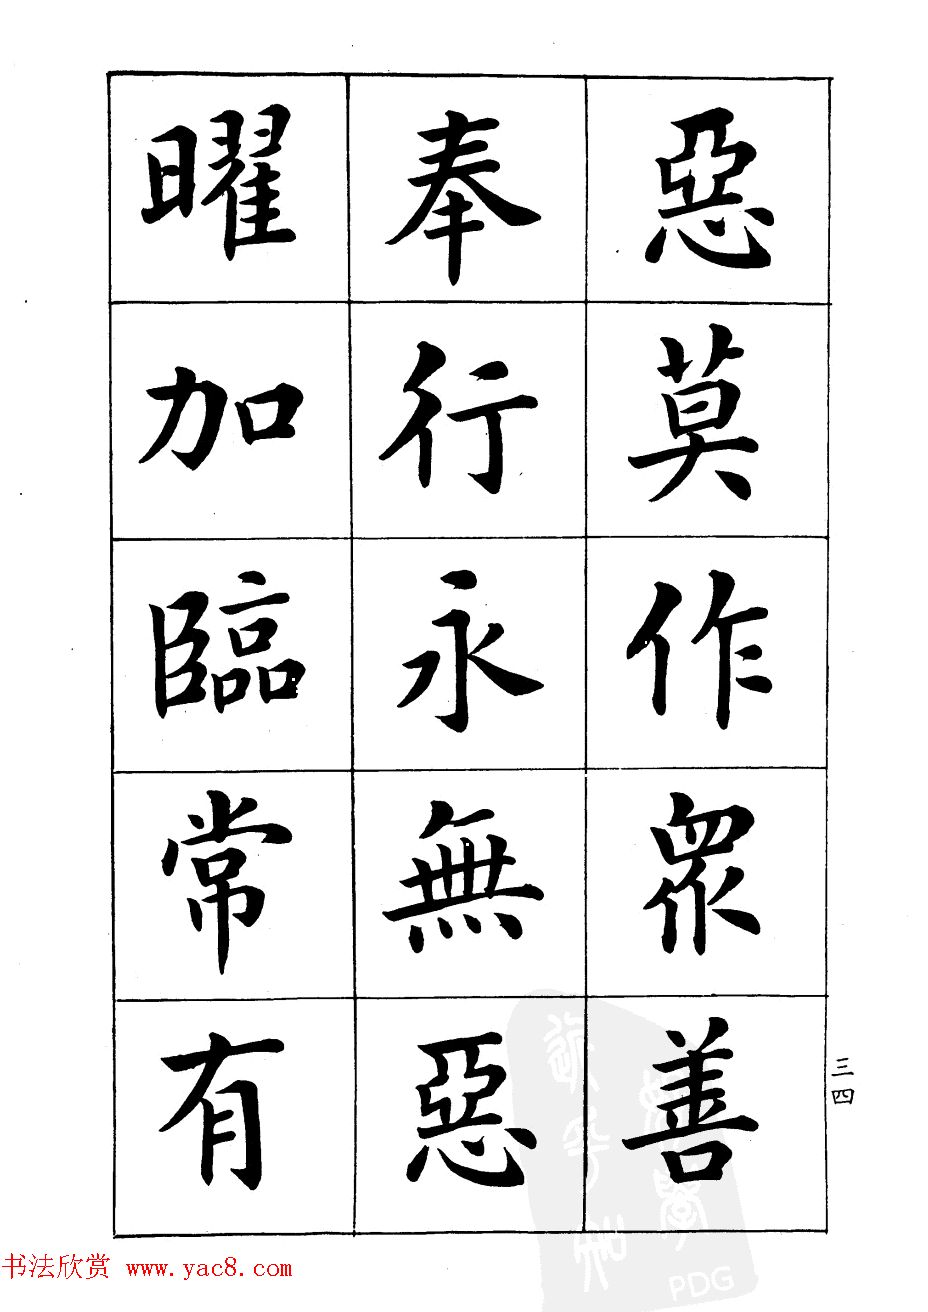 惡莫作眾善
奉行永無惡
曜加臨常有
三四
书法欣赏 www.yac8.com
PDG